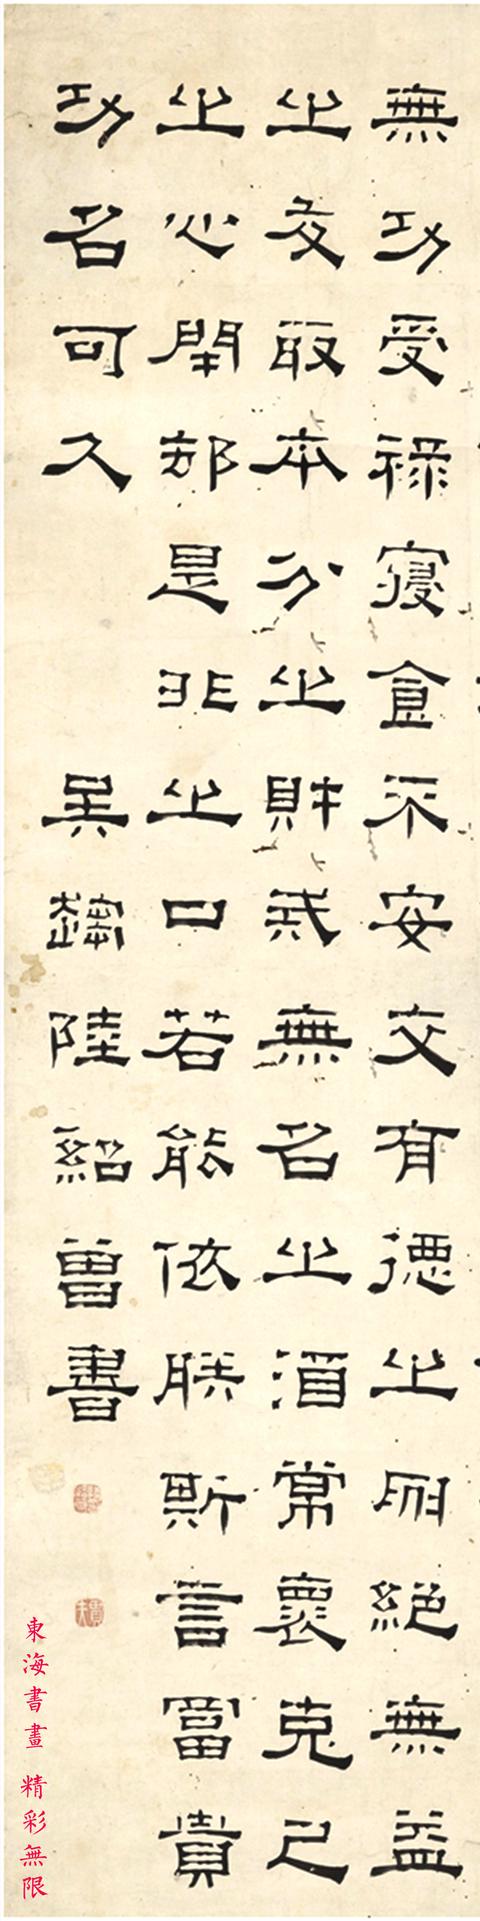 無功受祿寢食不安交有德之朋絕無益
之友取本分之財戒無名之酒常懷克己
之心閉却是非之口若能依朕斯言富貴
功名可久 吳趨陸紹曾書
東海書畫 精彩無限